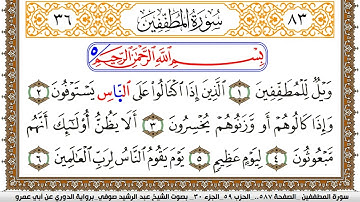 ٣٦ سُورَةُ المُطَفِّفِينَ ٨٣
بِسْمِ اللَّهِ الرَّحْمَٰنِ الرَّحِيمِ
وَيْلٌ لِّلْمُطَفِّفِينَ ١ الَّذِينَ إِذَا اكْتَالُوا عَلَى النَّاسِ يَسْتَوْفُونَ ٢
وَإِذَا كَالُوهُمْ أَو وَّزَنُوهُمْ يُخْسِرُونَ ٣ أَلَا يَظُنُّ أُولَٰئِكَ أَنَّهُم
مَّبْعُوثُونَ ٤ لِيَوْمٍ عَظِيمٍ ٥ يَوْمَ يَقُومُ النَّاسُ لِرَبِّ الْعَالَمِينَ ٦
سورة المطففين .. الصفحة ٥٨٧.. الحزب ٥٩ ..الجزء ٣٠ .. بصوت الشيخ عبد الرشيد صوفي ..برواية الدوري عن أبي عمرو